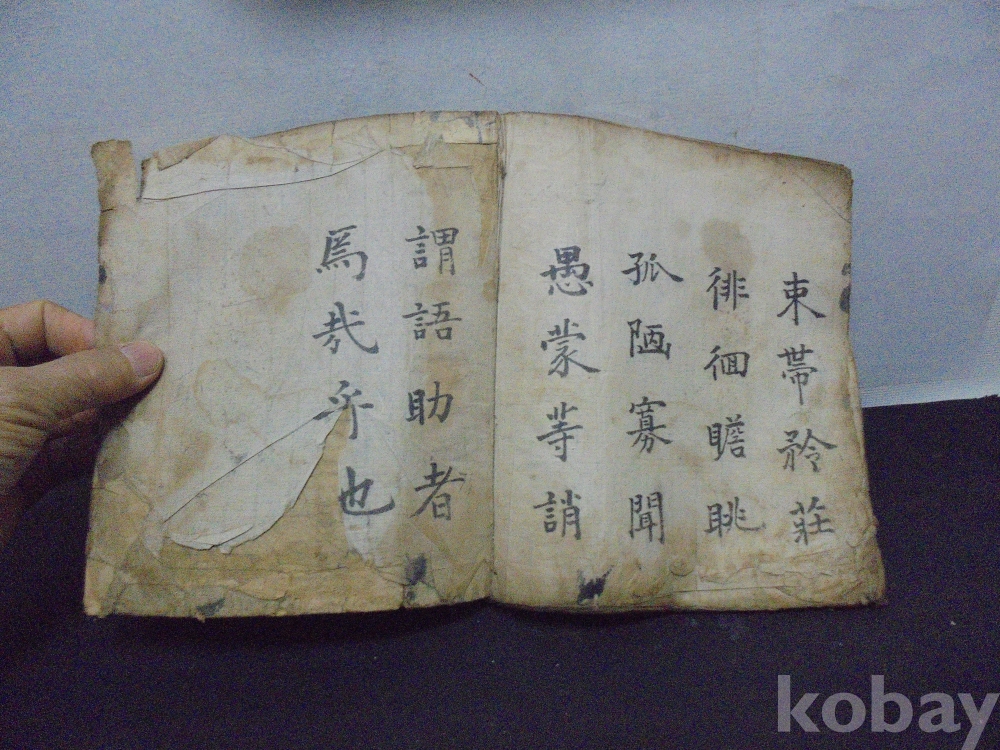 束帶矜莊
徘徊瞻眺
孤陋寡聞
愚蒙等誚
謂語助者
焉哉乎也
kobay